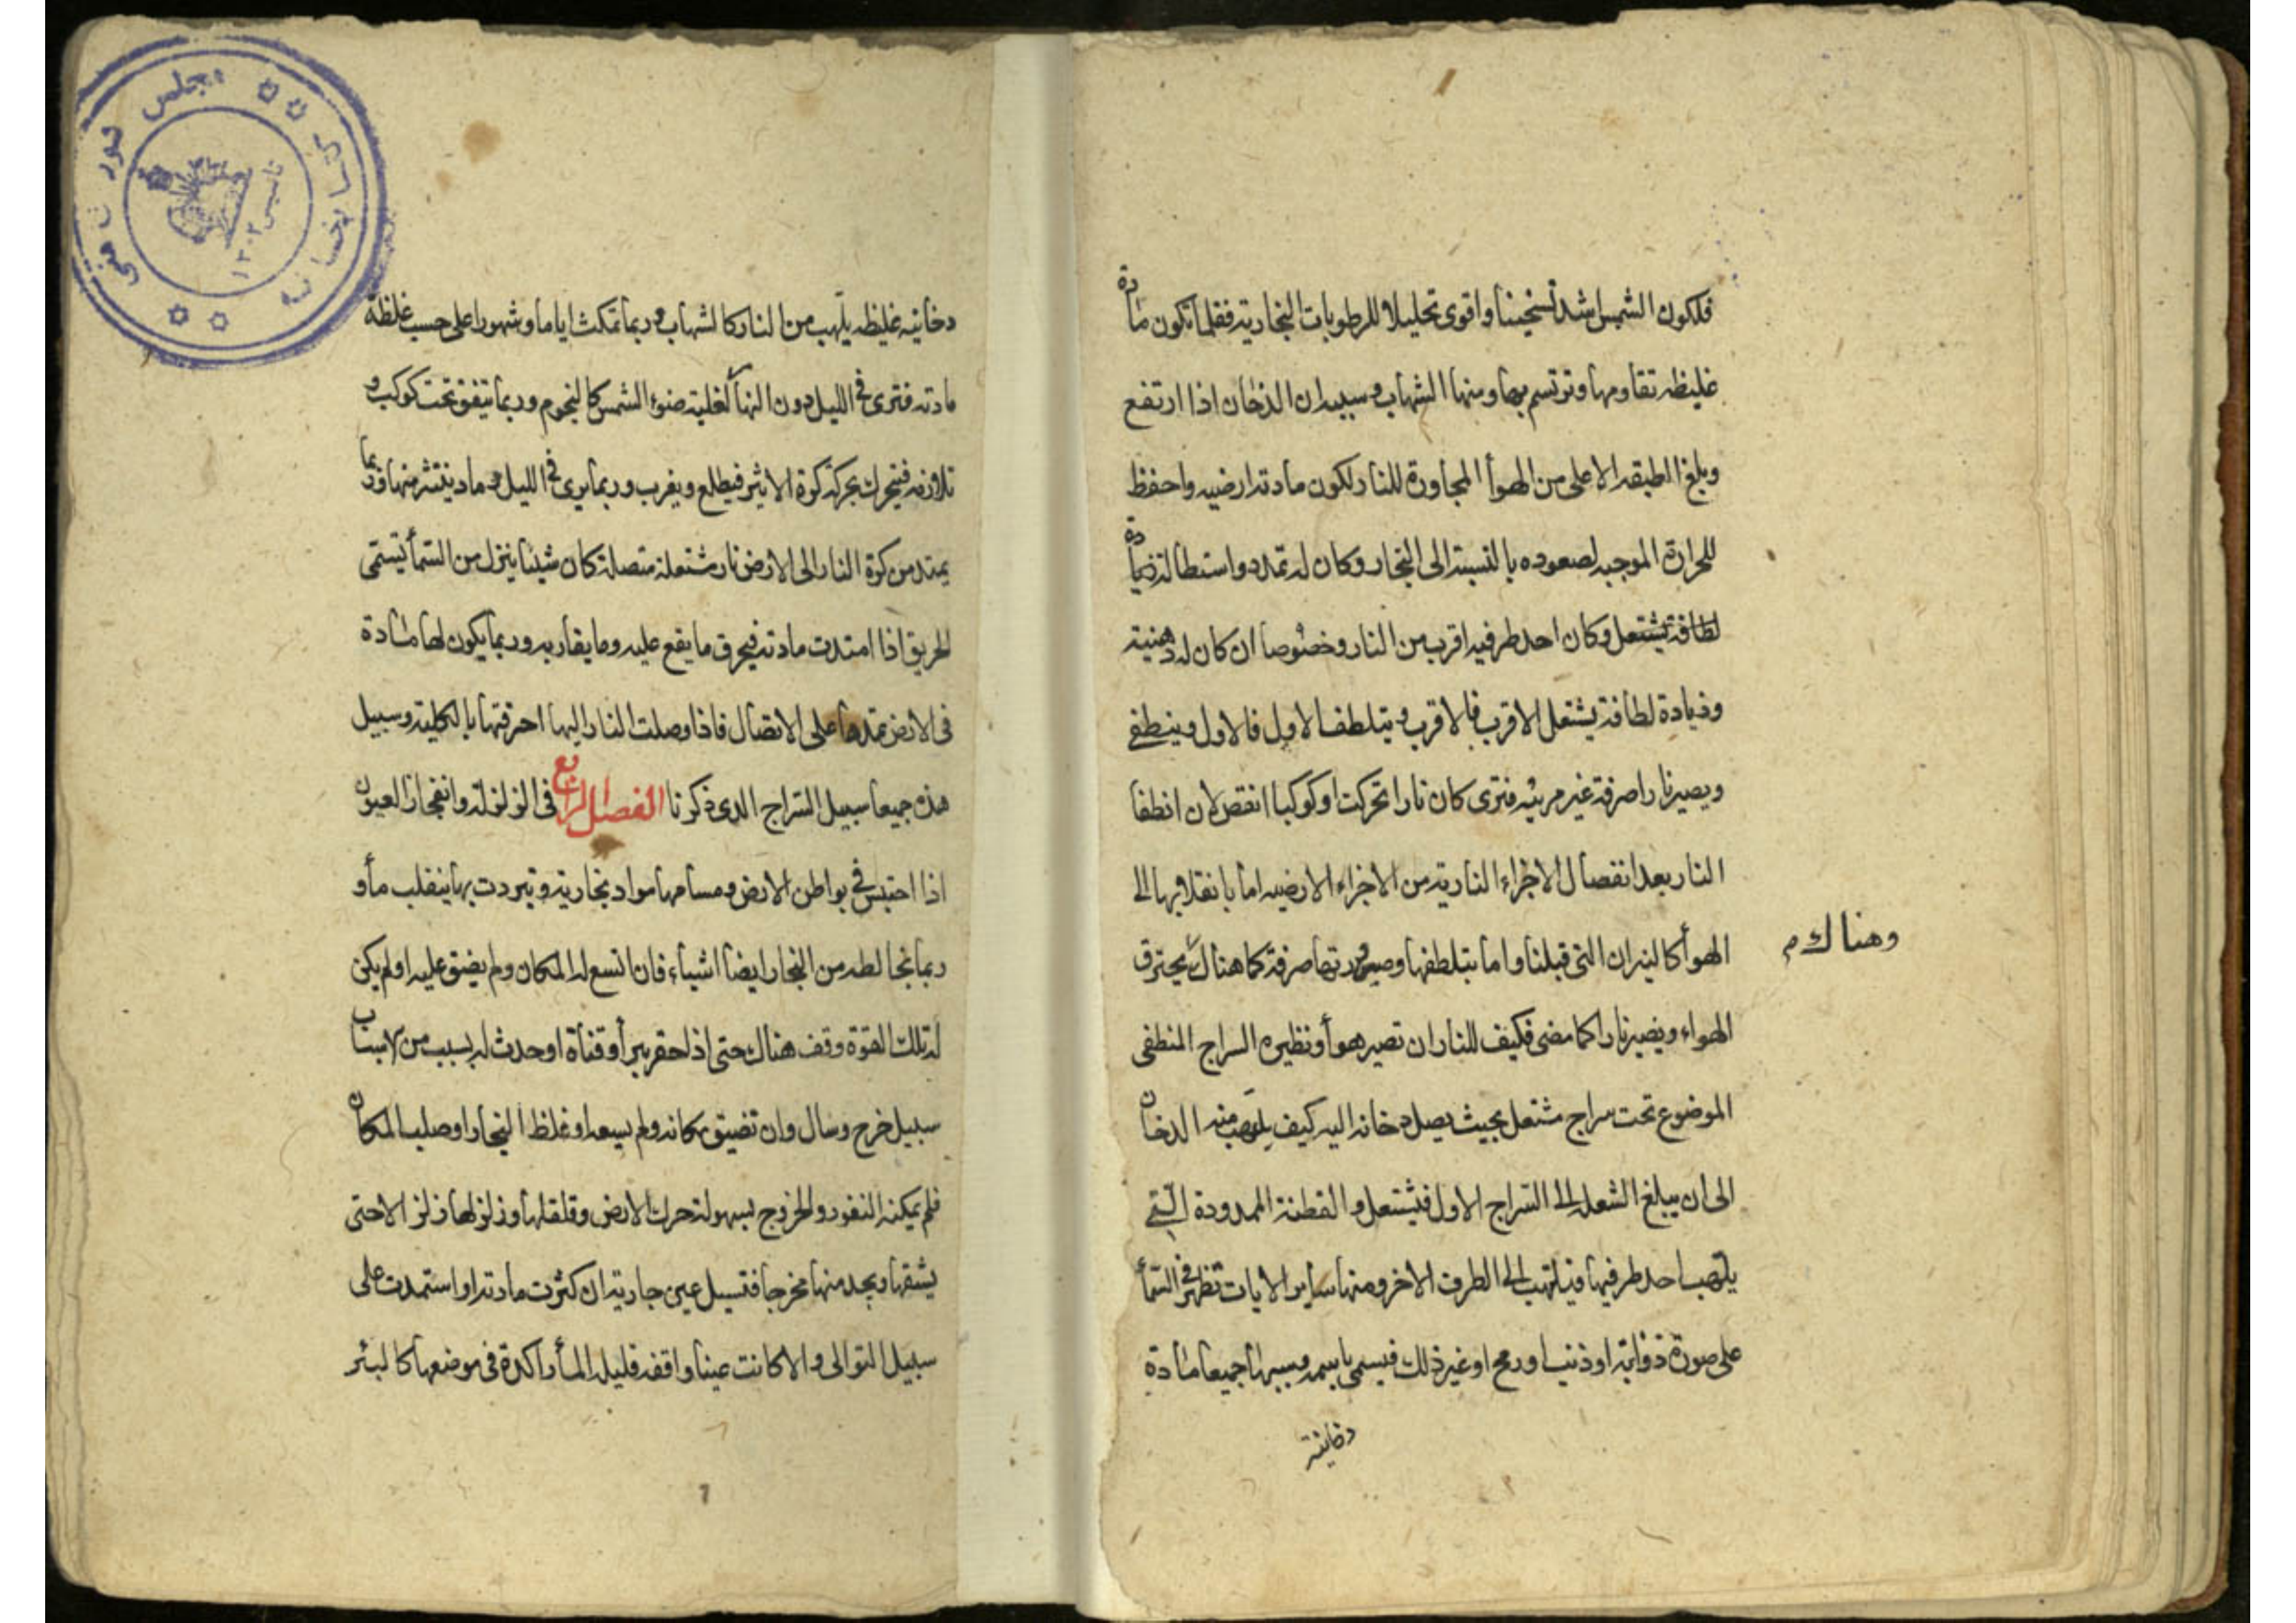 فلكون الشمس اشد تسخينا واقوى تحليلا للرطوبات البخارية فقلما تكون مادة
غليظه تقاومها وترتسم بها ومنها الشهاب وسببه ان الدخان اذا ارتفع
وبلغ الطبقه الاعلى من الهوأ المجاورة للنار لكون مادته ارضيه واحفظ
للحرارة الموجبه لصعوده بالنسبة الى البخار وكان له تمدد واستطالة زيادة
لطافة يشتعل وكان احد طرفيه اقرب من النار وخصوصا ان كان له دهنية
وزيادة لطافة يشتعل الاقرب فالاقرب ويتلطف الاول فالاول وينطفى
ويصير نارا صرفة غير مرئيه فترى كان نارا تحركت او كوكبا انقض لان انطفا
النار بعد انفصال الاجزاء النارية من الاجزاء الارضيه اما بانقلابها الى
الهوأ كالنيران التى قبلنا واما بتلطفها وصيرورتها صرفة كما هناك يحترق
وهناك م
الهواء ويصير نارا كما مضى فكيف للنار ان تصير هوأ ونظيره السراج المنطفى
الموضوع تحت سراج مشتعل بحيث يصل دخانه اليه كيف يلتهب منه الدخان
الى ان يبلغ الشعله الى السراج الاول فيشتعل والقطنة الممدودة التى
يلتهب احد طرفيها فيلتهب الى الطرف الاخر ومنها ساير الايات تظهر فى السمأ
على صورة ذؤابة او ذنب او رمح او غير ذلك فيسمى باسمه وسببها جميعا مادة
دخانية
دخانيه غليظه يلتهب من النار كالشهاب وربما تمكث اياما وشهورا على حسب غلظة
مادته فترى فى الليل دون النهار لغلبة ضوء الشمس كالنجوم وربما يتفق تحت كوكب و
تلازمه فيتحرك بحركة كرة الاثير فيطلع ويغرب وربما يرى فى الليل رماد ينتشر منها وربما
يمتد من كرة النار الى الارض نار مشتعلة متصلة كان شيئا ينزل من السمأ تسمى
الحريق اذا امتدت مادته فيحرق ما يقع عليه وما يقاربه وربما يكون لها مادة
فى الارض تمدها على الاتصال فاذا وصلت النار اليها احرقتها بالكلية وسبيل
هذه جميعا سبيل السراج الذى ذكرنا الفصل الرابع فى الزلزلة وانفجار العيون
اذا احتبس فى بواطن الارض ومسامها مواد بخارية وتبردت بها ينقلب مأ و
ربما يخالطه من البخار ايضا اشياء فان اتسع له المكان ولم يضق عليه او لم يكن
له تلك القوة وقف هناك حتى اذا حفر بير أو قناة او حدث له بسبب من الاسباب
سبيل خرج وسال وان تضيق مكانه ولم يسعه او غلظ البخار او صلب المكان
فلم يمكنه النفوذ والخروج بسهولة حرك الارض وقلقلها وزلزلها زلزالا حتى
يشقها ويجد منها مخرجا فتسيل عين جارية ان كثرت مادته او استمدت على
سبيل التوالى والا كانت عينا واقفه قليله المأ راكدة فى موضعها كالبئر